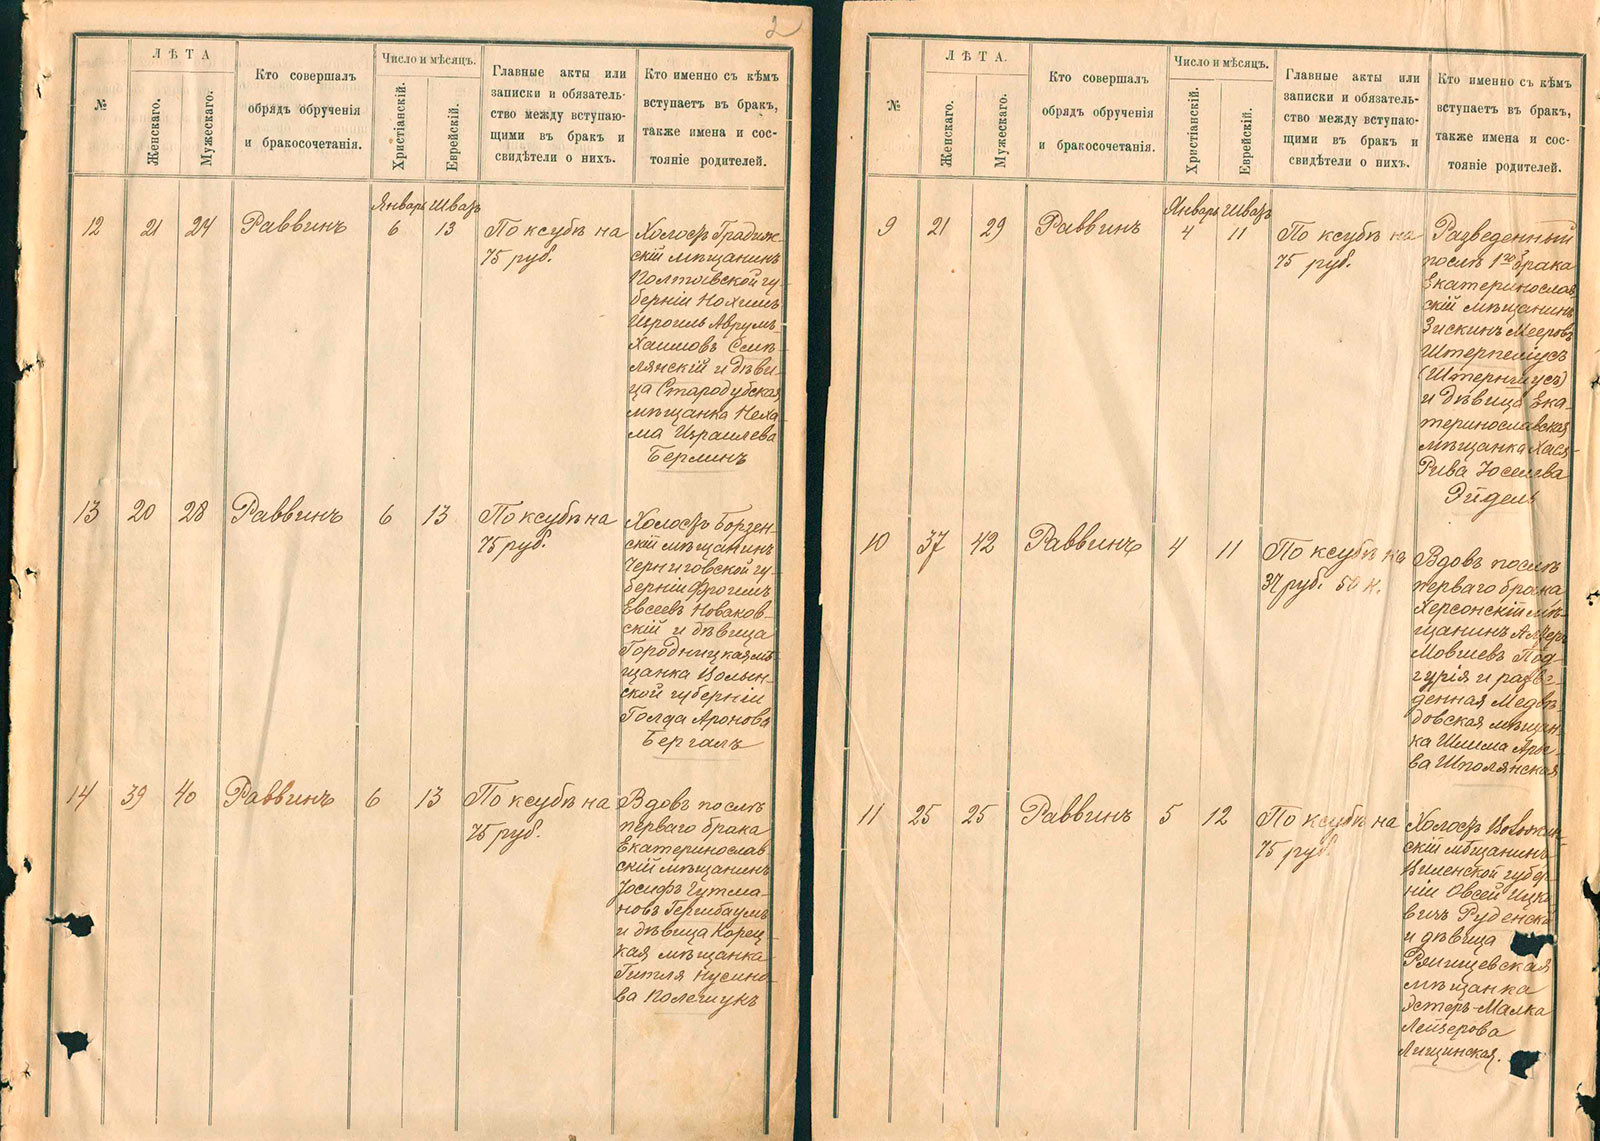 2
№
ЛѢТА
Женскаго.
Мужескаго.
Кто совершалъ
обрядъ обрученія
и бракосочетанія.
Число и мѣсяцъ.
Христіанскій.
Еврейскій.
Главные акты или
записки и обязатель-
ство между вступаю-
щими въ бракъ и
свидѣтели о нихъ.
Кто именно съ кѣмъ
вступаетъ въ бракъ,
также имена и сос-
тояніе родителей.
Январь Шватъ
12 21 24 Раввинъ 6 13
По ксубѣ на
75 руб.
Холостъ Градиж-
скій мѣщанинъ
Полтавской гу-
берніи Нохимъ
Изроиль Аврумъ-
Хаимовъ Семе-
лянскій и дѣви-
ца Стародубская
мѣщанка Неха-
ма Израилева
Берлинъ
13 20 28 Раввинъ 6 13
По ксубѣ на
75 руб.
Холостъ Борзен-
скій мѣщанинъ
Черниговской гу-
берніи Фроимъ
Евсеевъ Новаков-
скій и дѣвица
Городницкая мѣ-
щанка Волын-
ской губерніи
Голда Аронова
Бергалъ
14 39 40 Раввинъ 6 13
По ксубѣ на
75 руб.
Вдовъ послѣ
перваго брака
Екатеринослав
скій мѣщанинъ
Іосифъ Гутма-
новъ Гершбаумъ
и дѣвица Корец-
кая мѣщанка
Гитля Нусино-
ва Полещукъ
№
ЛѢТА.
Женскаго.
Мужескаго.
Кто совершалъ
обрядъ обрученія
и бракосочетанія.
Число и мѣсяцъ.
Христіанскій.
Еврейскій.
Главные акты или
записки и обязатель-
ство между вступаю-
щими въ бракъ и
свидѣтели о нихъ.
Кто именно съ кѣмъ
вступаетъ въ бракъ,
также имена и сос-
тояніе родителей.
Январь Шватъ
9 21 29 Раввинъ 4 11
По ксубѣ на
75 руб.
Разведенный
послѣ 1го брака
Екатеринослав
скій мѣщанинъ
Зискинъ Мееровъ
Штерпеліусъ
и дѣвица Ека-
теринославская
мѣщанка Хася-
Рива Іоселева
Эйдель
10 37 42 Раввинъ 4 11
По ксубѣ на
37 руб. 50 к.
Вдовъ послѣ
перваго брака
Херсонскій мѣ-
щанинъ
Мовшевъ Под-
гурія и разве-
денная Медвѣ-
довская мѣщан-
ка Шлима Аро-
ва Шполянская
11 25 25 Раввинъ 5 12
По ксубѣ на
75 руб.
Холостъ Воложин-
скій мѣщанинъ
Виленской губер-
ніи Овсей Ицко-
вичъ Руденскій
и дѣвица
Ржищевская
мѣщанка
Эстеръ-Малка
Лейзерова
Лищинская.